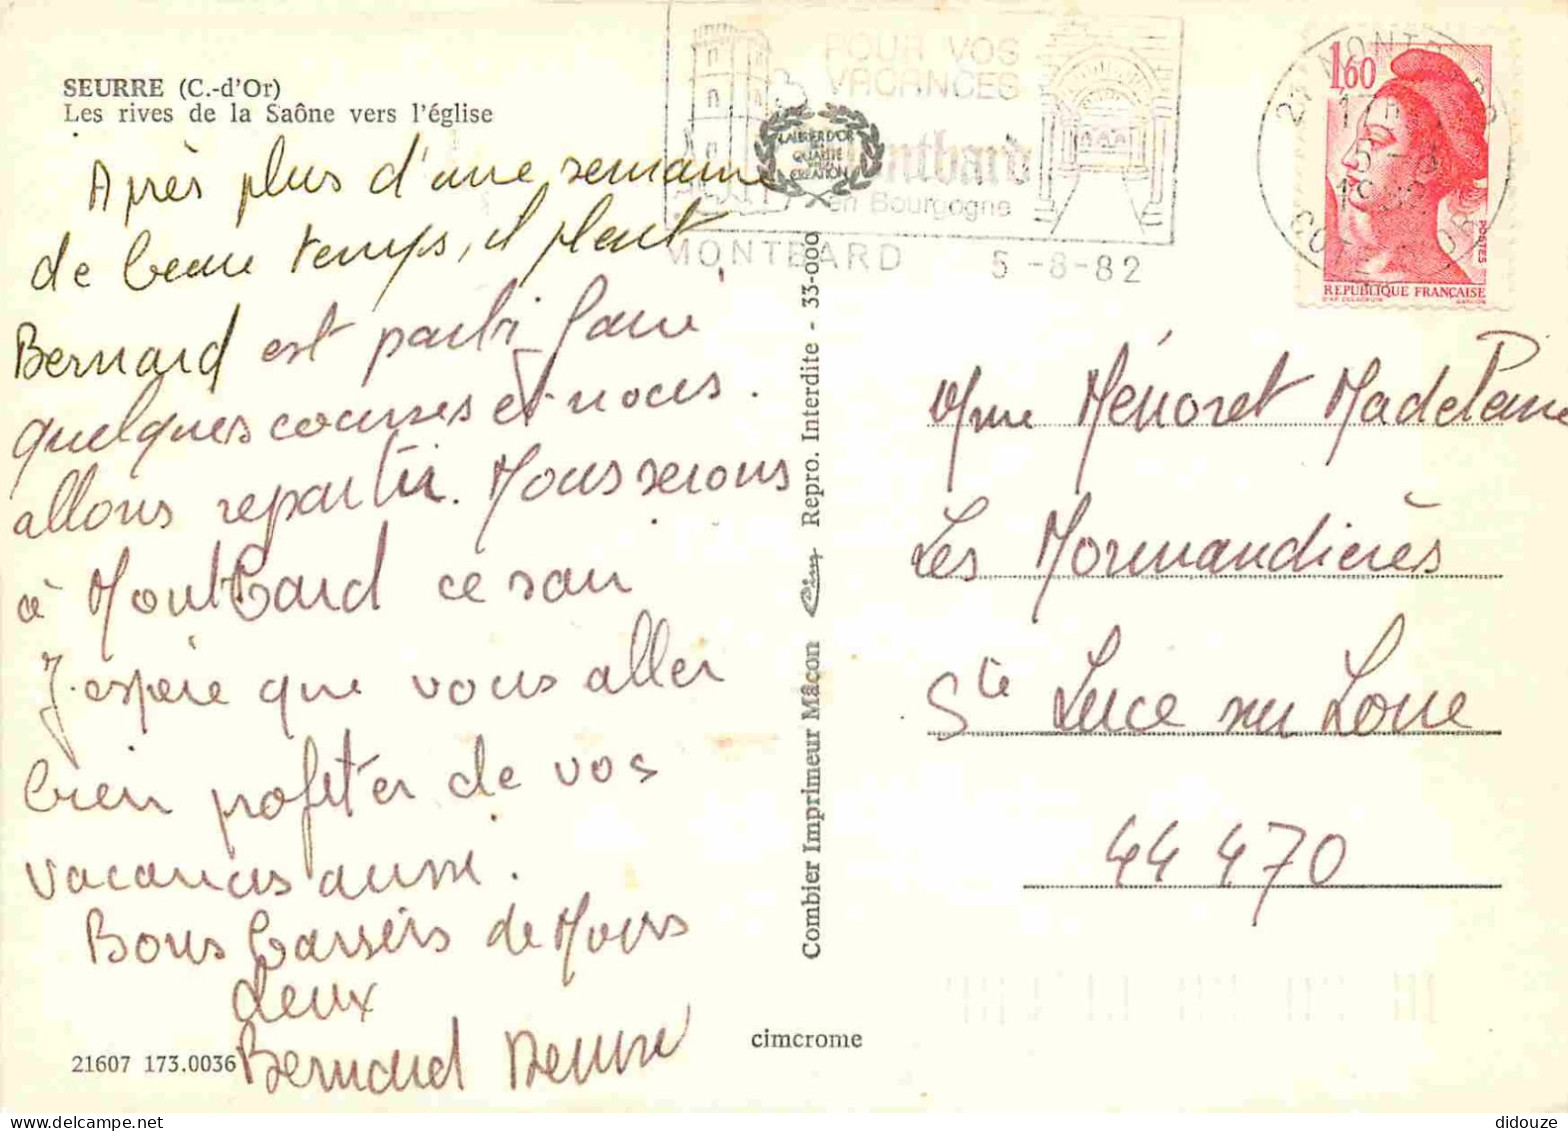 SEURRE (C.-d'Or)
Les rives de la Saône vers l'église
Après plus d'une semaine
de beau temps, il pleut
Bernard est parti faire
quelques courses et nous
allons repartir. Nous serons
à Montbard ce soir
J'espère que vous aller
bien profiter de vos
vacances aussi.
Bons baisers de Nous
deux
Bernard Denise
21607 173.0036
cimcrome
Combier Imprimeur Mâcon Cim Repro. Interdite - 33-000
POUR VOS
VACANCES
Montbard
en Bourgogne
MONTBARD 5-8-82
LAURIER D'OR
QUALITÉ
CRÉATION
21 MONTBARD
17H
5-8
1982
COTE D'OR
1,60
POSTES
RÉPUBLIQUE FRANÇAISE
Mme Ménoret Madeleine
Les Normandières
Ste Luce sur Loire
44 470
didouze